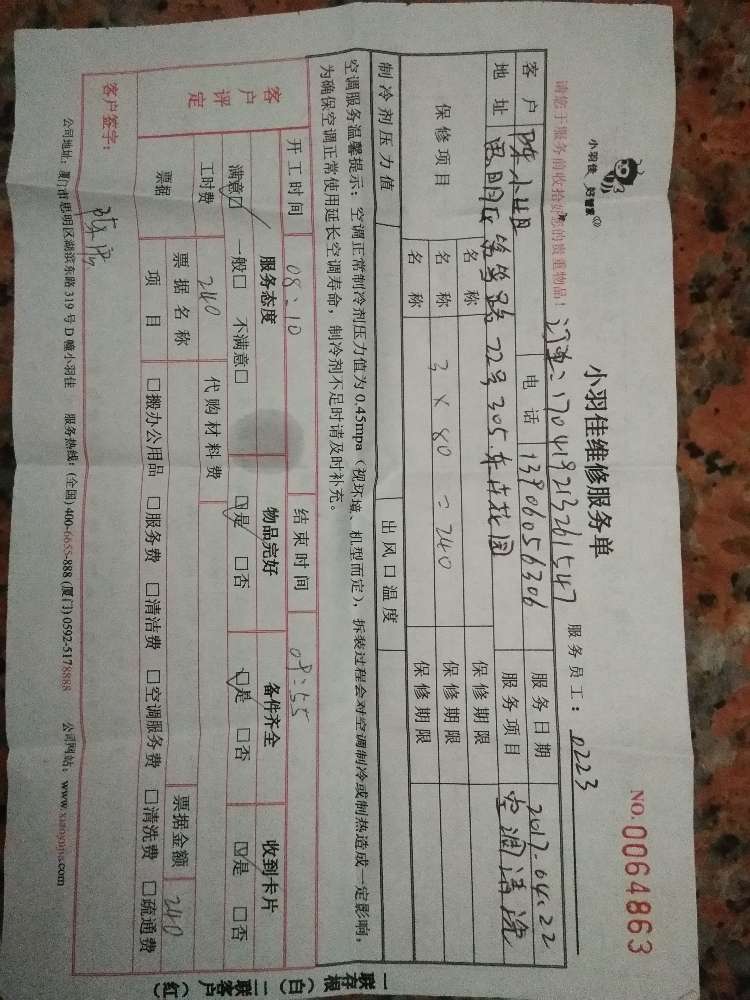 小羽佳 好管家
小羽佳维修服务单
NO.0064863
请您于服务前收拾好您的贵重物品!
订单:1704192132611547
服务员工: 0223
客户 陈小姐 电话 13906056306 服务日期 2017.04.22
地址 思明区筼筜路22号305 服务项目 空调清洗
保修项目 名称 保修期限
名称 3×80=240 保修期限
名称 保修期限
制冷剂压力值 出风口温度
空调服务温馨提示:空调正常制冷剂压力值为0.45mpa(视环境、机型而定),拆装过程会对空调制冷或制热造成一定影响,
为确保空调正常使用延长空调寿命,制冷剂不足时请及时补充。
开工时间 08:10 结束时间 09:55
客户评定 服务态度 物品完好 备件齐全 收到卡片
满意☑ 一般□ 不满意□ ☑是 □否 ☑是 □否 ☑是 □否
工时费 240 代购材料费
票据 票据名称 票据金额 240
项目 □搬办公用品 □服务费 □清洁费 □空调服务费 □清洗费 □疏通费
客户签字:
公司地址:厦门市思明区湖滨东路319号D幢小羽佳 服务热线:(全国)400-6655-888 (厦门)0592-5178888 公司网站:www.xiaoyujia.com
一联存根(白) 二联客户(红)